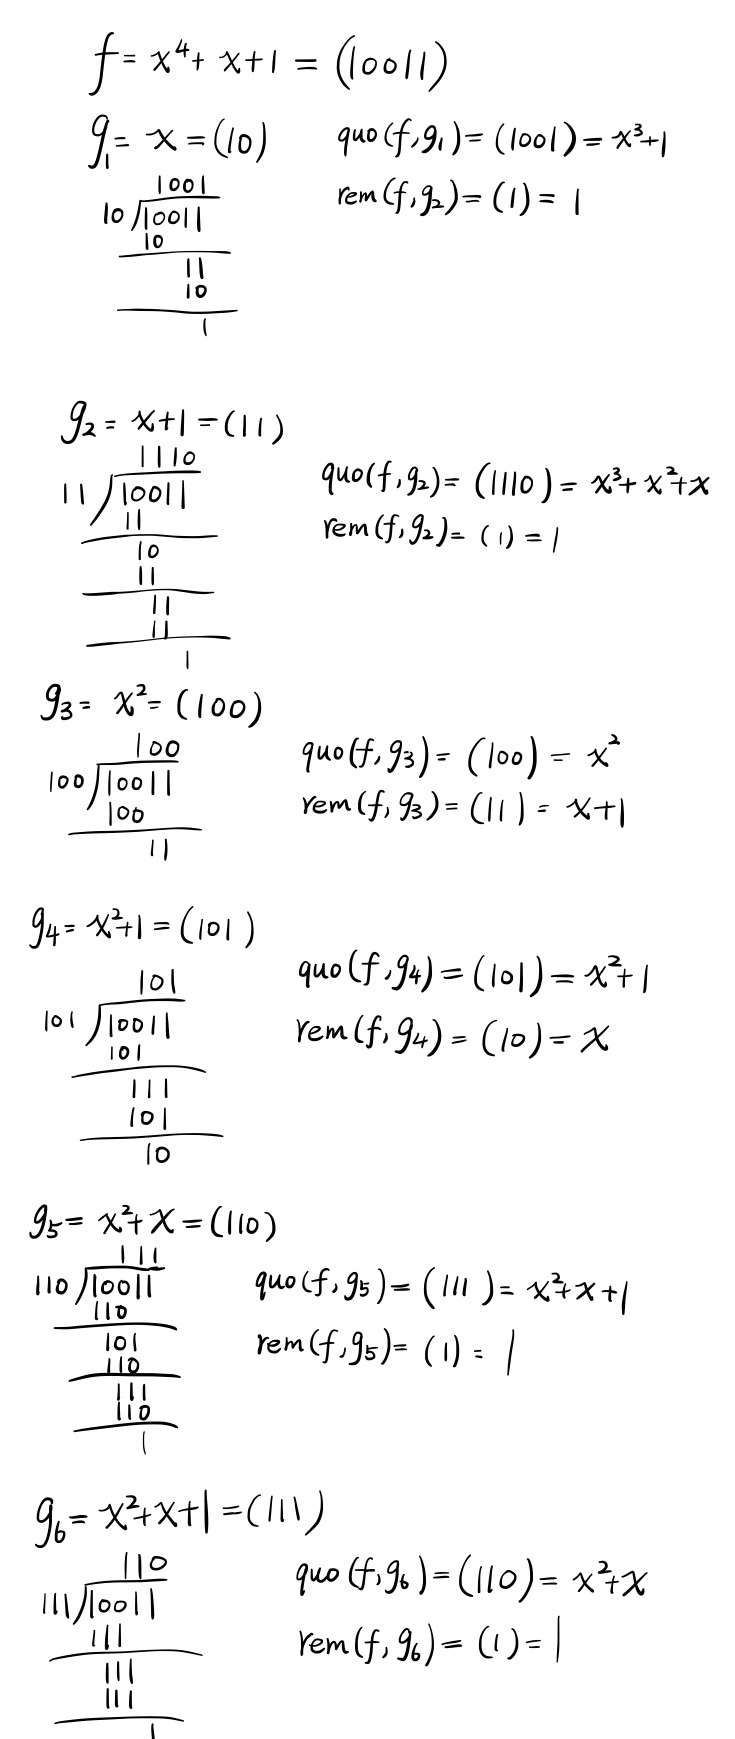 f = x⁴ + x + 1 = (10011)
g₁ = x = (10)
quo(f, g₁) = (1001) = x³+1
rem(f, g₂) = (1) = 1
1001
10 /10011
10
11
10
1
g₂ = x+1 = (11)
1110
11 /10011
11
10
11
11
11
1
quo(f, g₂) = (1110) = x³+x²+x
rem(f, g₂) = (1) = 1
g₃ = x² = (100)
100
100 /10011
100
11
quo(f, g₃) = (100) = x²
rem(f, g₃) = (11) = x+1
g₄ = x²+1 = (101)
101
101 /10011
101
111
101
10
quo(f, g₄) = (101) = x²+1
rem(f, g₄) = (10) = x
g₅ = x²+x = (110)
111
110 /10011
110
101
110
111
110
1
quo(f, g₅) = (111) = x²+x+1
rem(f, g₅) = (1) = 1
g₆ = x²+x+1 = (111)
110
111 /10011
111
111
111
1
quo(f, g₆) = (110) = x²+x
rem(f, g₆) = (1) = 1